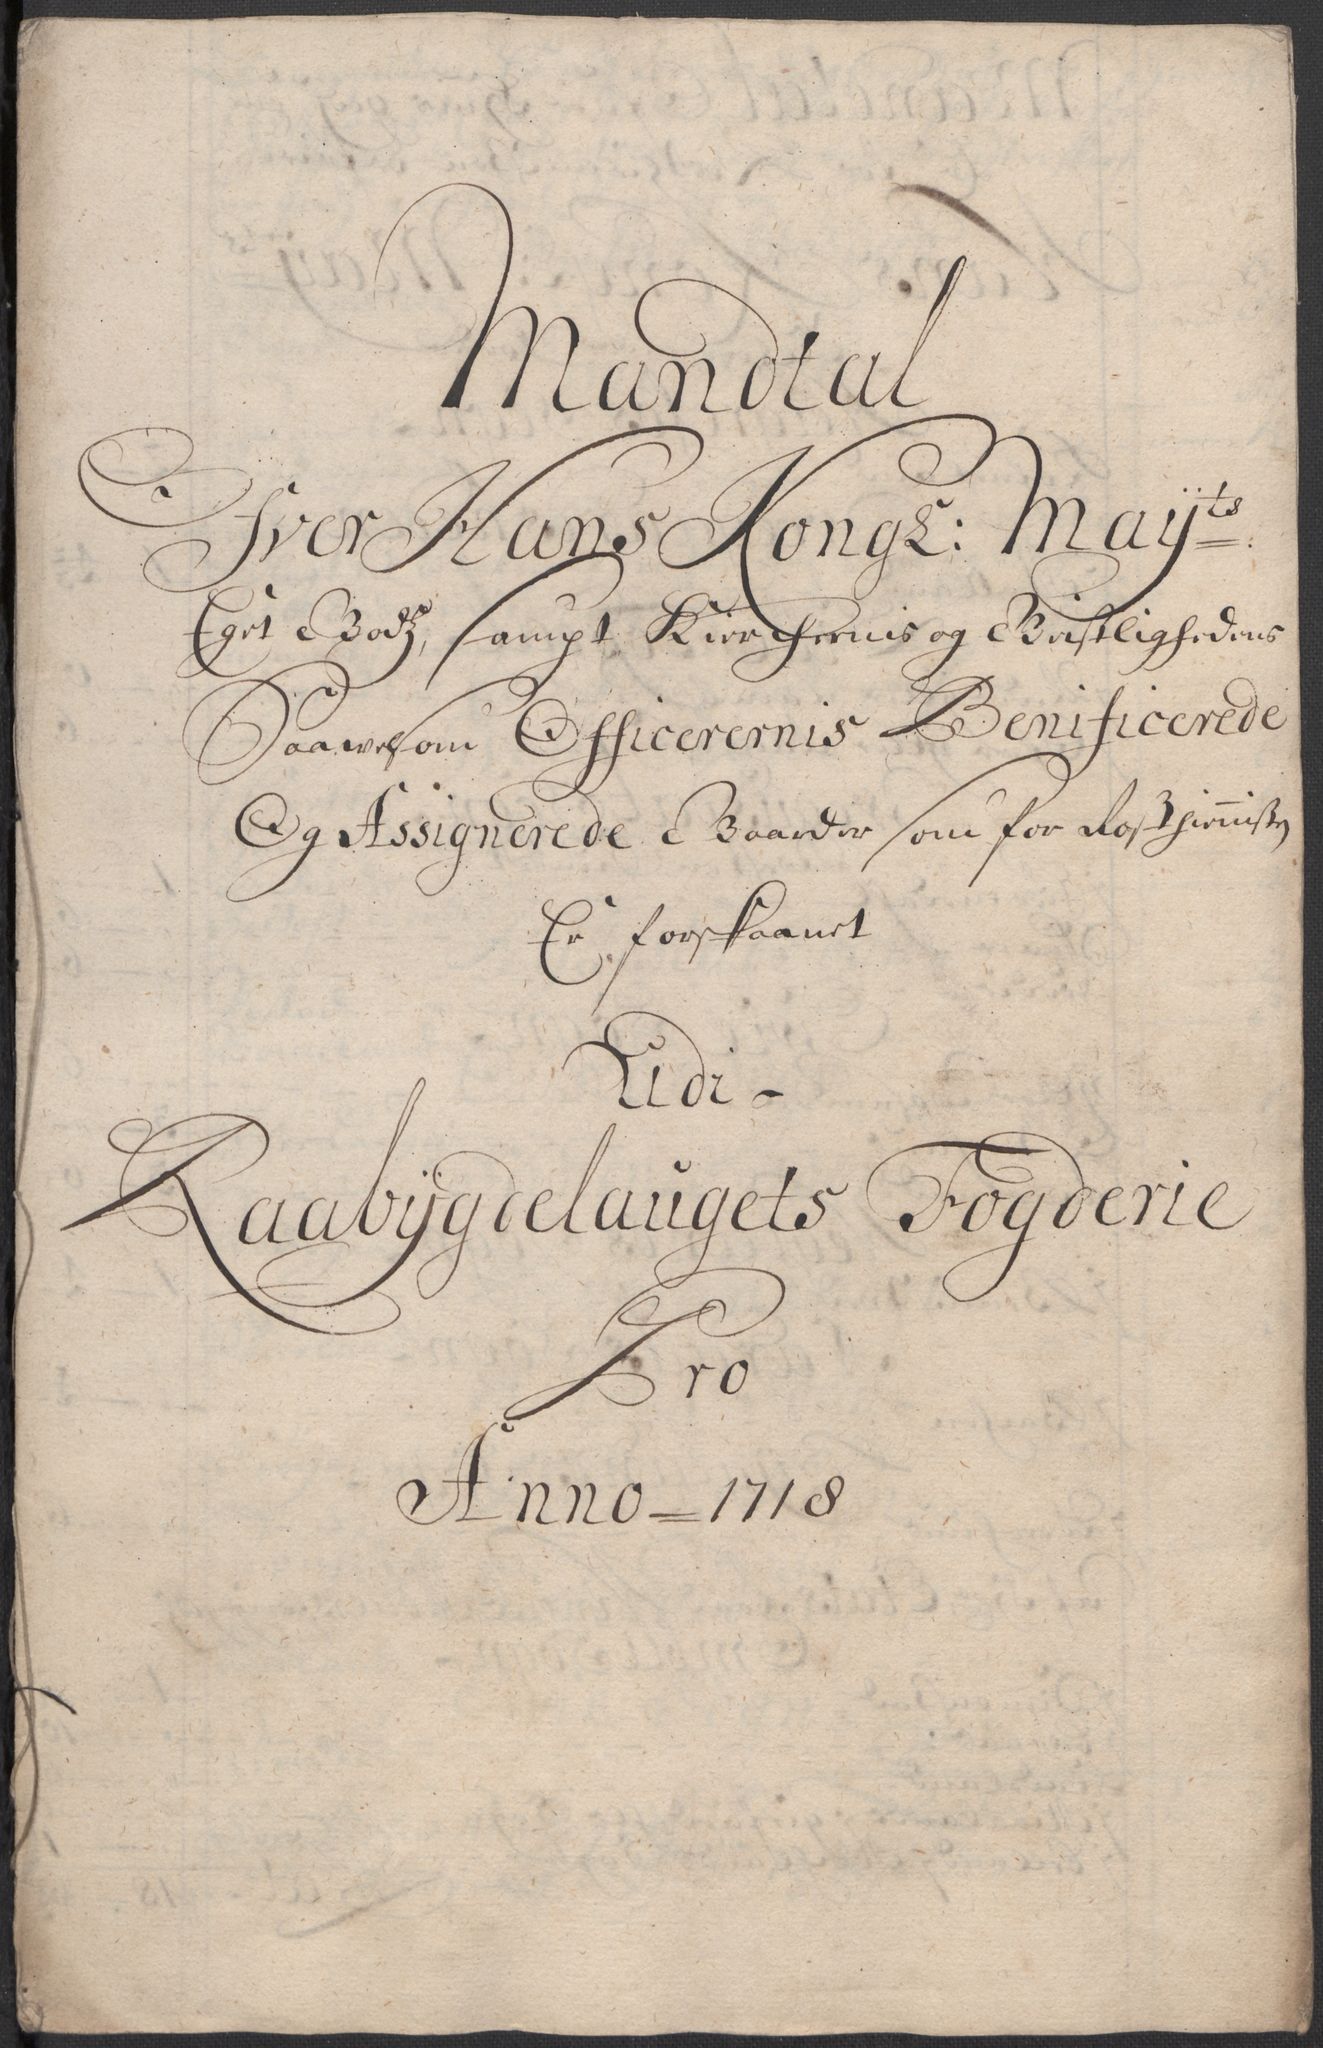 Mandtal
Ofver Hans Kongl: Mayts
Eget Godz, sampt Kierchernis og Geistlighedens
Saavelsom Officerernis Benificerede
Og Assignerede Gaarder som for Rostienisten
Er forskaanet
Udi
Raabygdelaugets Fogderie
Pro
Anno 1718